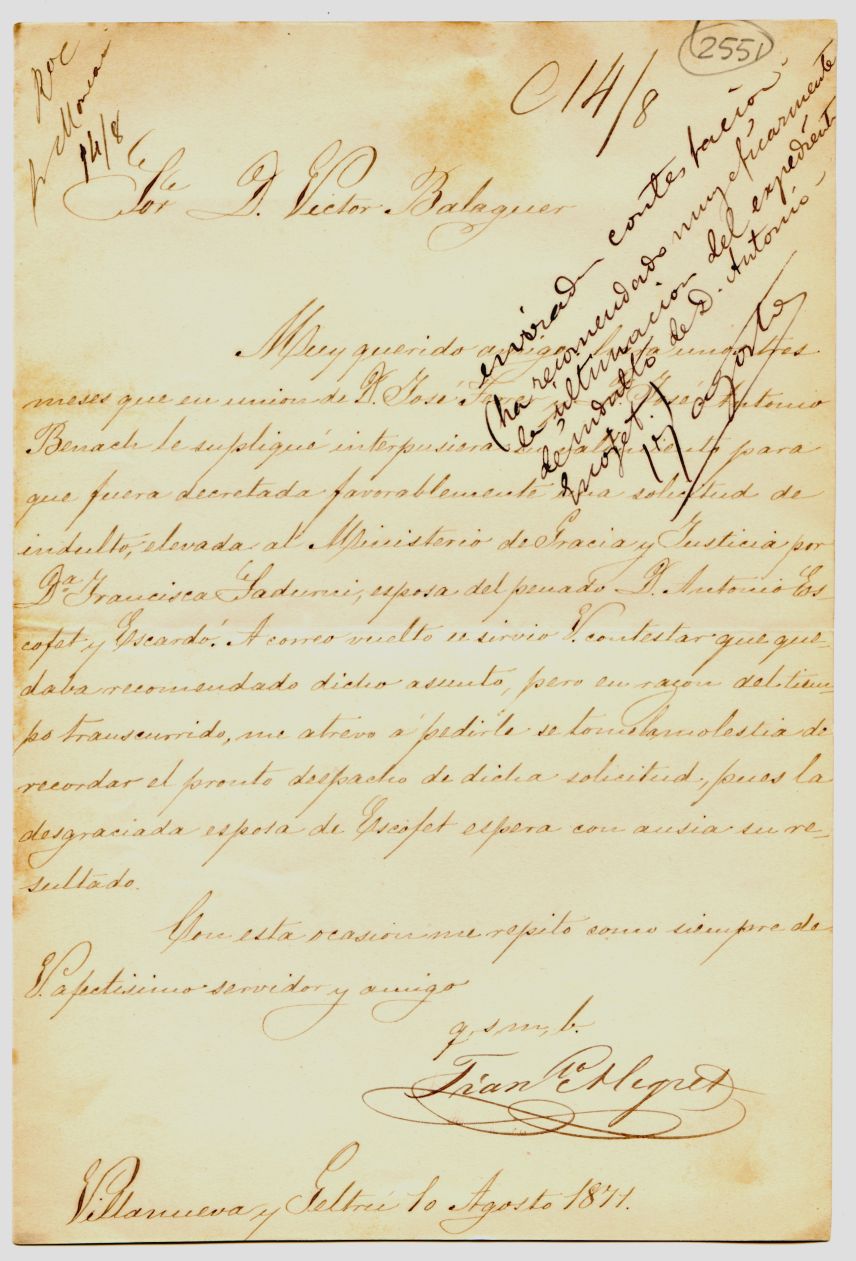 2551
C 14/8
Roc
Moncas
14/8
Sor. D. Victor Balaguer
enviada contestación
(ha recomendado muy eficazmente
la ultimacion del expediente
de indulto de D. Antonio
Escofet.)
17 agosto
Muy querido amigo: hará unos tres
meses que en union de D. José Ferrer y D. José Antonio
Benach le supliqué interpusiera su valimiento para
que fuera decretada favorablemente una solicitud de
indulto, elevada al Ministerio de Gracia y Justicia por
Da. Francisca Sadurní, esposa del penado D. Antonio Es-
cofet y Escardó. A correo vuelto se sirvio V. contestar que que-
daba recomendado dicho asunto, pero en razon del tiem-
po transcurrido, me atrevo á pedirle se tome la molestia de
recordar el pronto despacho de dicha solicitud, pues la
desgraciada esposa de Escofet espera con ansia su re-
sultado.
Con esta ocasion me repito como siempre de
V. afectisimo servidor y amigo
q. s. m. b.
Franco. Alegret
Villanueva y Geltrú 10 Agosto 1871.